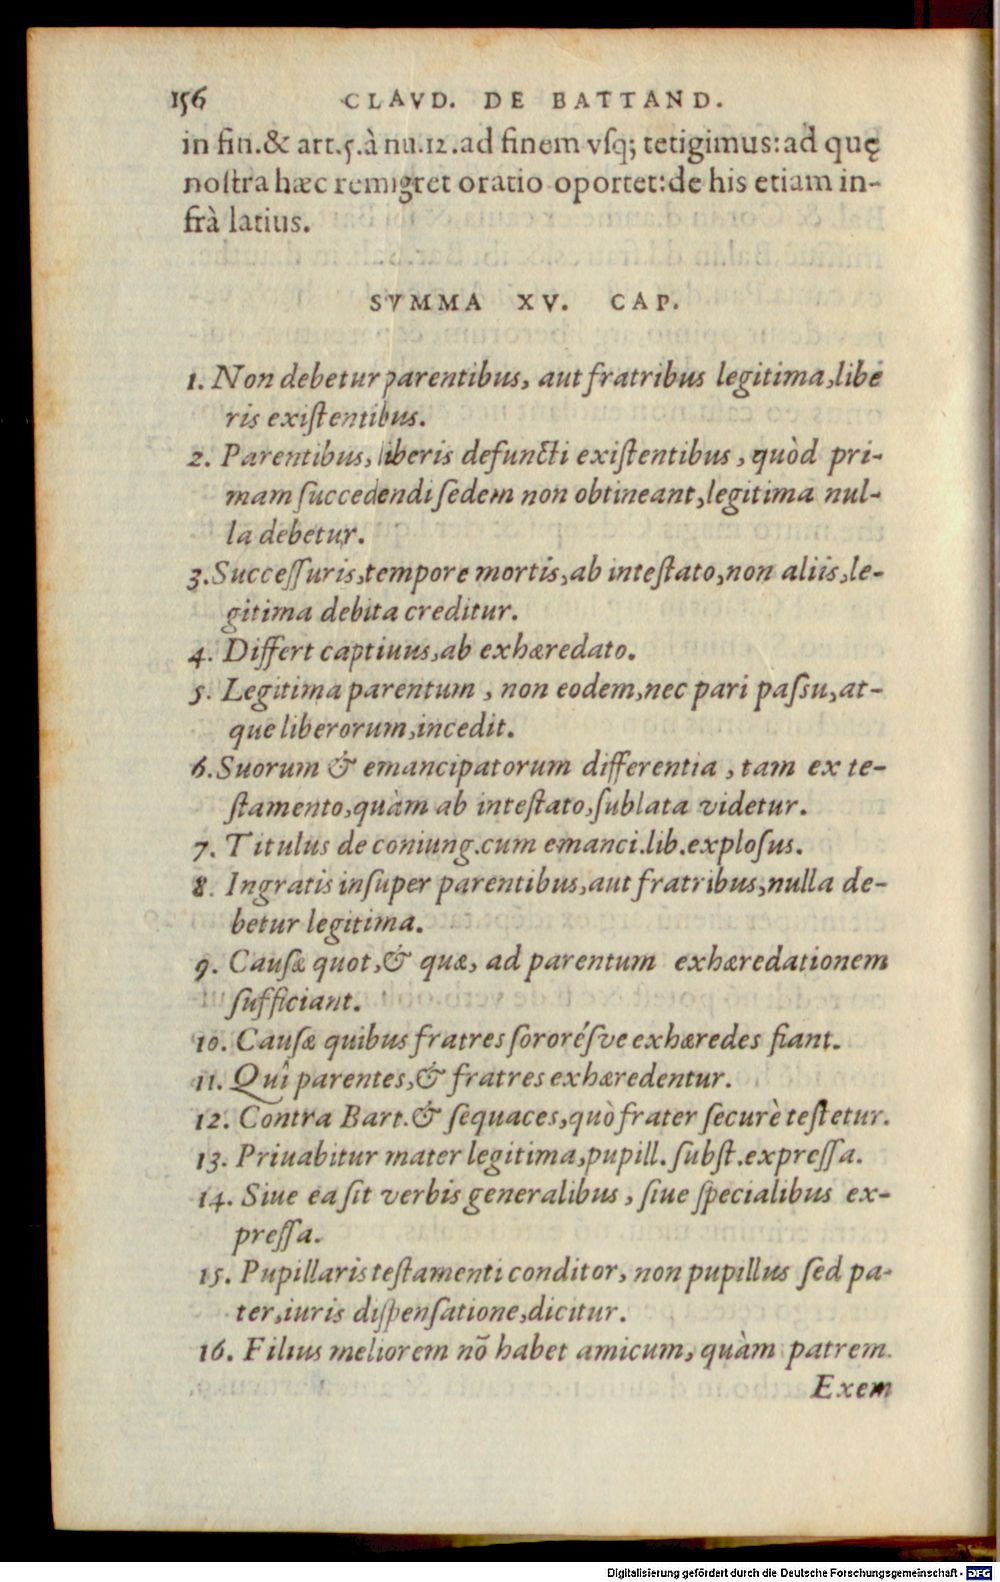 156 CLAVD. DE BATTAND.
in fin.& art.5.à nu.12.ad finem vſq; tetigimus:ad quę
noſtra hæc remigret oratio oportet:de his etiam in-
frà latius.
SVMMA XV. CAP.
1. Non debetur parentibus, aut fratribus legitima,libe
ris exiſtentibus.
2. Parentibus, liberis defuncti exiſtentibus, quòd pri-
mam ſuccedendi ſedem non obtineant,legitima nul-
la debetur.
3.Succeſſuris,tempore mortis,ab inteſtato,non aliis,le-
gitima debita creditur.
4. Differt captiuus,ab exhæredato.
5. Legitima parentum, non eodem,nec pari paſsu,at-
que liberorum,incedit.
6.Suorum & emancipatorum differentia, tam ex te-
ſtamento,quàm ab inteſtato,ſublata videtur.
7. Titulus de coniung.cum emanci.lib.exploſus.
8. Ingratis inſuper parentibus,aut fratribus,nulla de-
betur legitima.
9. Cauſæ quot,& quæ, ad parentum exhæredationem
ſufficiant.
10. Cauſæ quibus fratres ſororéſve exhæredes fiant.
11. Quî parentes,& fratres exhæredentur.
12. Contra Bart.& ſequaces,quò frater ſecurè teſtetur.
13. Priuabitur mater legitima,pupill. ſubſt.expreſſa.
14. Siue ea ſit verbis generalibus, ſiue ſpecialibus ex-
preſſa.
15. Pupillaris teſtamenti conditor, non pupillus ſed pa-
ter,iuris diſpenſatione,dicitur.
16. Filius meliorem nõ habet amicum, quàm patrem.
Exem
Digitalisierung gefördert durch die Deutsche Forschungsgemeinschaft - DFG